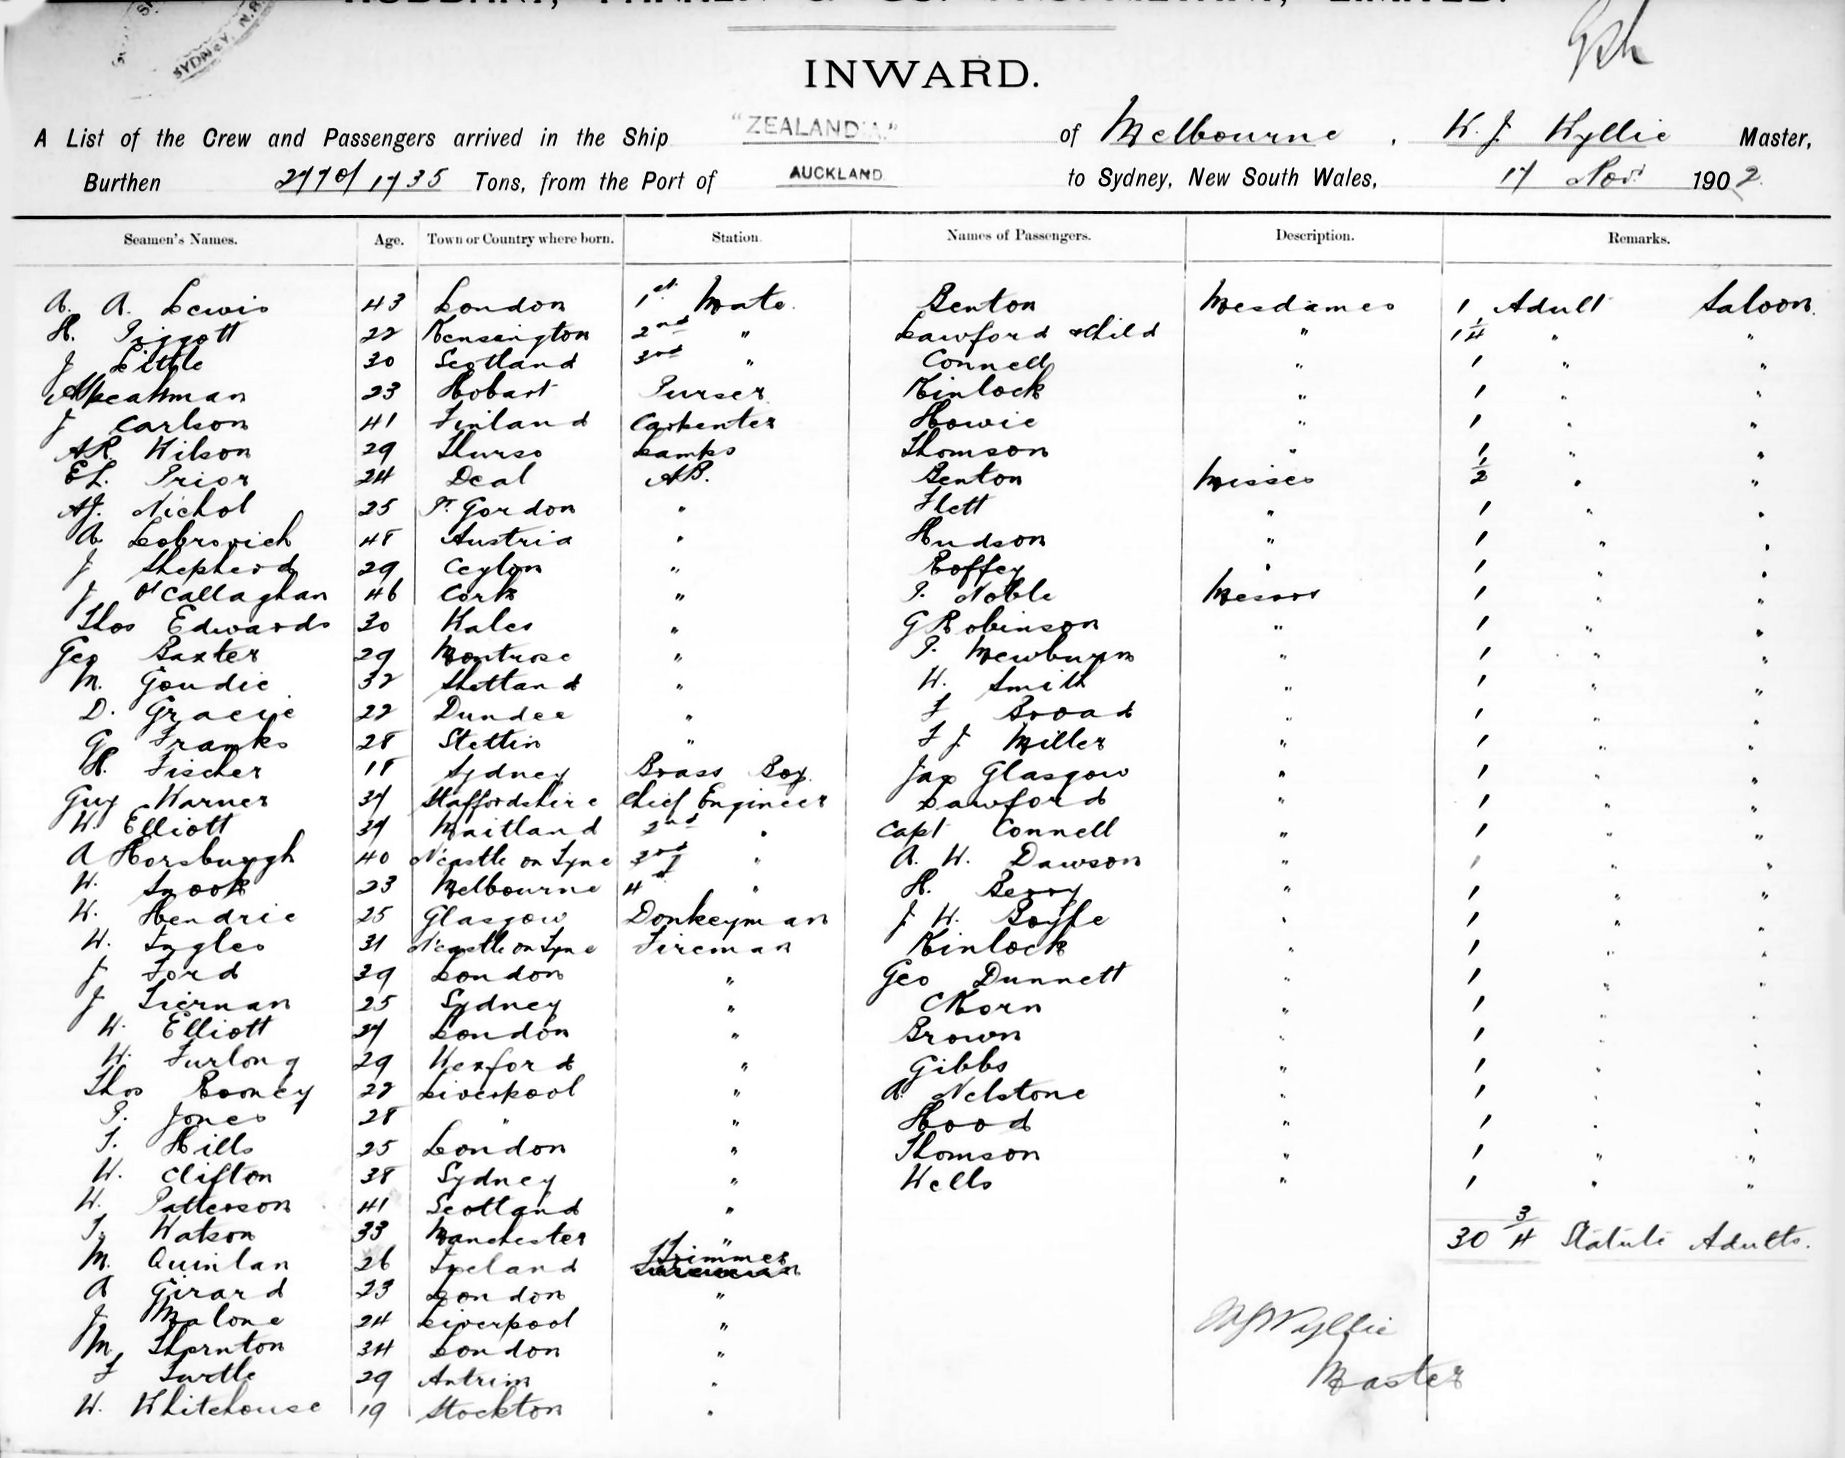 HUDDART, PARKER & CO. PROPRIETARY, LIMITED.
SYDNEY, N.S.
INWARD.
A List of the Crew and Passengers arrived in the Ship "ZEALANDIA." of Melbourne, W. J. Wyllie Master,
Burthen 2770/1735 Tons, from the Port of AUCKLAND to Sydney, New South Wales, 17 Nov: 1902.
Seamen's Names. Age. Town or Country where born. Station. Names of Passengers. Description. Remarks.
A. A. Lewis 43 London 1st Mate. Benton Mesdames 1 Adult Saloon.
H. Piggott 22 Kensington 2nd " Lawford & Child " 1 1/4 " "
J Little 30 Scotland 3rd " Connell " 1 " "
Speakman 23 Hobart Purser Kinlock " 1 " "
J Carlson 41 Finland Carpenter Howie " 1 " "
AR. Wilson 29 Thurso Lamps Thomson " 1 " "
EL. Prior 24 Deal AB. Benton Misses 1/2 " "
AJ. Nichol 25 Pt. Gordon " Flett " 1 " "
A. Lobrovich 48 Austria " Hudson " 1 " "
J Shepherd 29 Ceylon " Roffey " 1 " "
J. O'Callaghan 46 Cork " P. Noble Messrs 1 " "
Thos Edwards 30 Wales " G Robinson " 1 " "
Geo Baxter 29 Montrose " P. Mewburn " 1 " "
M. Goudie 32 Shetland " W. Smith " 1 " "
D. Gracie 22 Dundee " F Broad " 1 " "
G. Franks 28 Stettin " F J Miller " 1 " "
H. Fischer 18 Sydney Brass Boy. Jas Glasgow " 1 " "
Guy Warner 37 Staffordshire Chief Engineer Lawford " 1 " "
W. Elliott 37 Maitland 2nd " Capt Connell " 1 " "
A Horsburgh 40 N'castle on Tyne 3rd " A. W. Dawson " 1 " "
W. Snook 23 Melbourne 4th " H. Berry " 1 " "
W. Hendrie 25 Glasgow Donkeyman J W. Boyle " 1 " "
W. Ingles 31 N'castle on Tyne Fireman Kinlock " 1 " "
J Ford 39 London " Geo Dunnett " 1 " "
J Tiernan 25 Sydney " C Horn " 1 " "
W. Elliott 27 London " Brown " 1 " "
W. Furlong 29 Wexford " Gibbs " 1 " "
Thos Rooney 22 Liverpool " A. Nelstone " 1 " "
P. Jones 28 " " Hood " 1 " "
T. Hills 25 London " Thomson " 1 " "
W. Clifton 38 Sydney " Wells " 1 " "
W. Patterson 41 Scotland "
T. Watson 33 Manchester " 30 3/4 Statute Adults.
M. Quinlan 26 Ireland Trimmer
A Girard 23 London "
J. Malone 24 Liverpool " W J Wyllie
M. Thornton 34 London "
F Turtle 29 Antrim " Master
W. Whitehouse 19 Stockton "